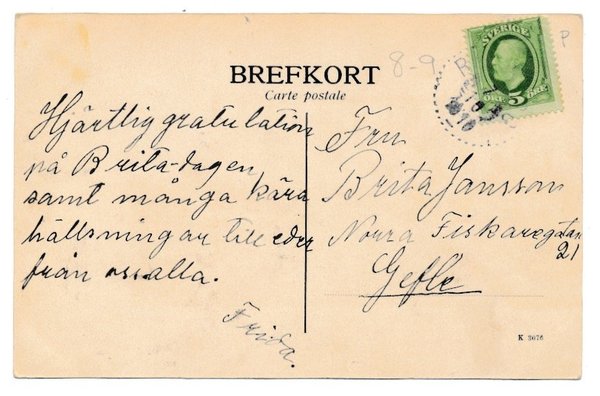 BREFKORT
Carte postale
8-9
P
SVERIGE
ÖRE 5 ÖRE
1910
Hjärtlig gratulation
på Brita-dagen
samt många kära
hällsningar till eder
från oss alla.
Frida.
Fru
Brita Jansson
Norra Fiskaregatan
21
Gefle
K 3076